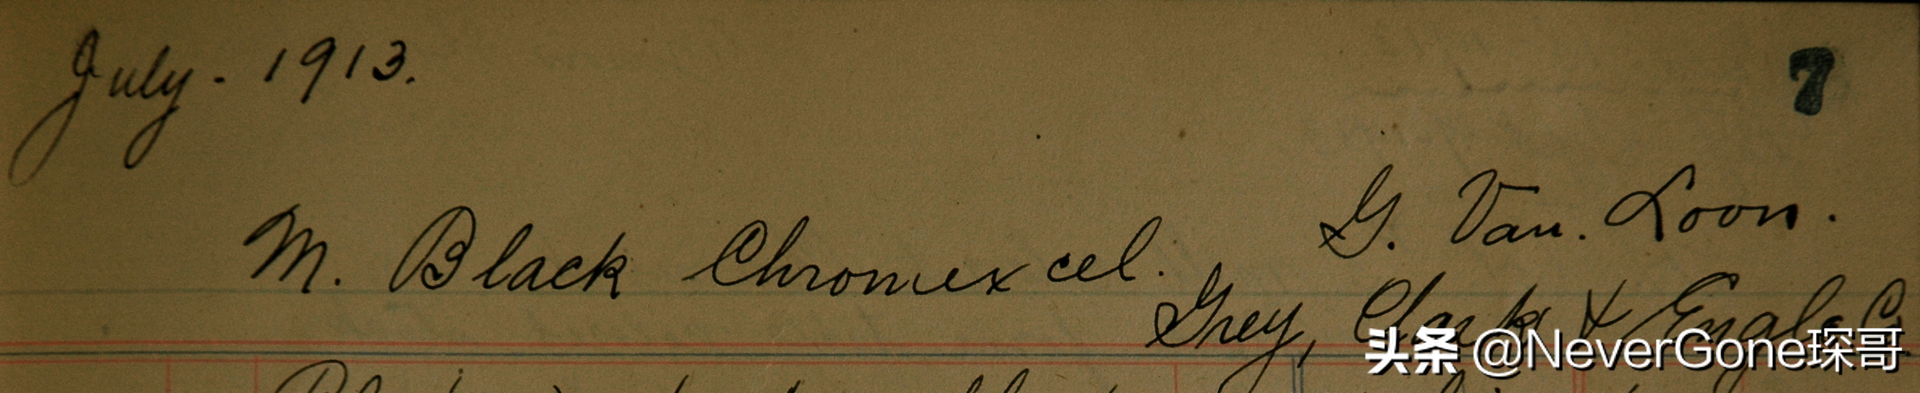 July - 1913.
7
M. Black Chromexcel.
G. Van. Loon.
Grey, Clark & Engle C
头条 @NeverGone琛哥